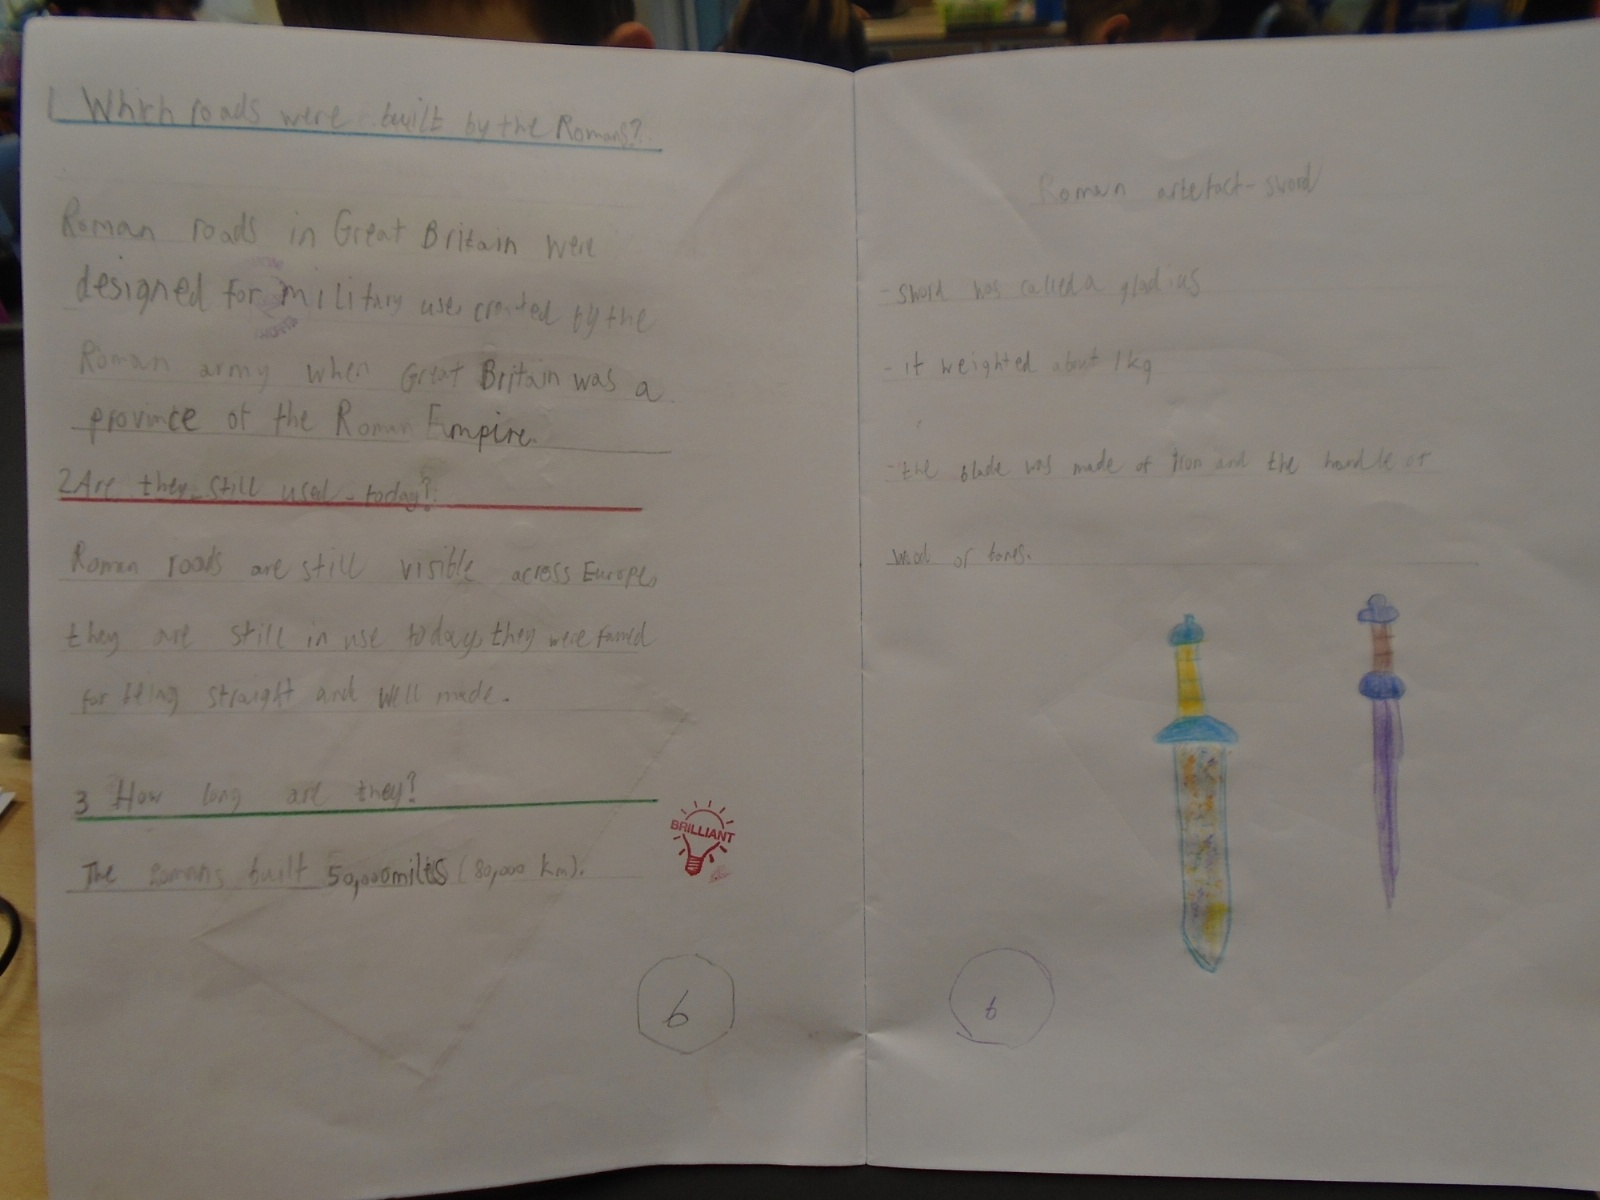 1 Which roads were built by the Romans?
Roman roads in Great Britain were
designed for military use, created by the
Roman army when Great Britain was a
province of the Roman Eumpire.
2 Are they still used today?
Roman roads are still visible across Europe,
they are still in use today, they were famed
for being straight and well made.
3 How long are they?
The Romans built 50,000 miles (80,000 km).
BRILLIANT
6
Roman artefact - sword
- sword was called a gladius
- it weighted about 1kg
- the blade was made of iron and the handle of
wood or bones.
6